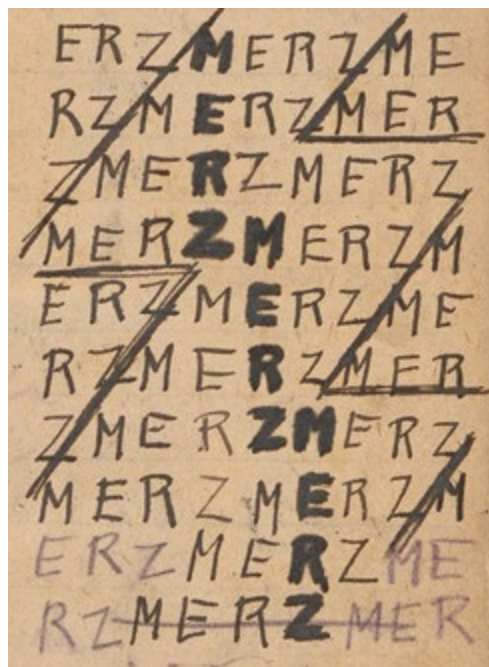 ERZMERZME
RZMERZMER
ZMERZMERZ
MERZMERZM
ERZMERZME
RZMERZMER
ZMERZMERZ
MERZMERZM
ERZMERZME
RZMERZMER